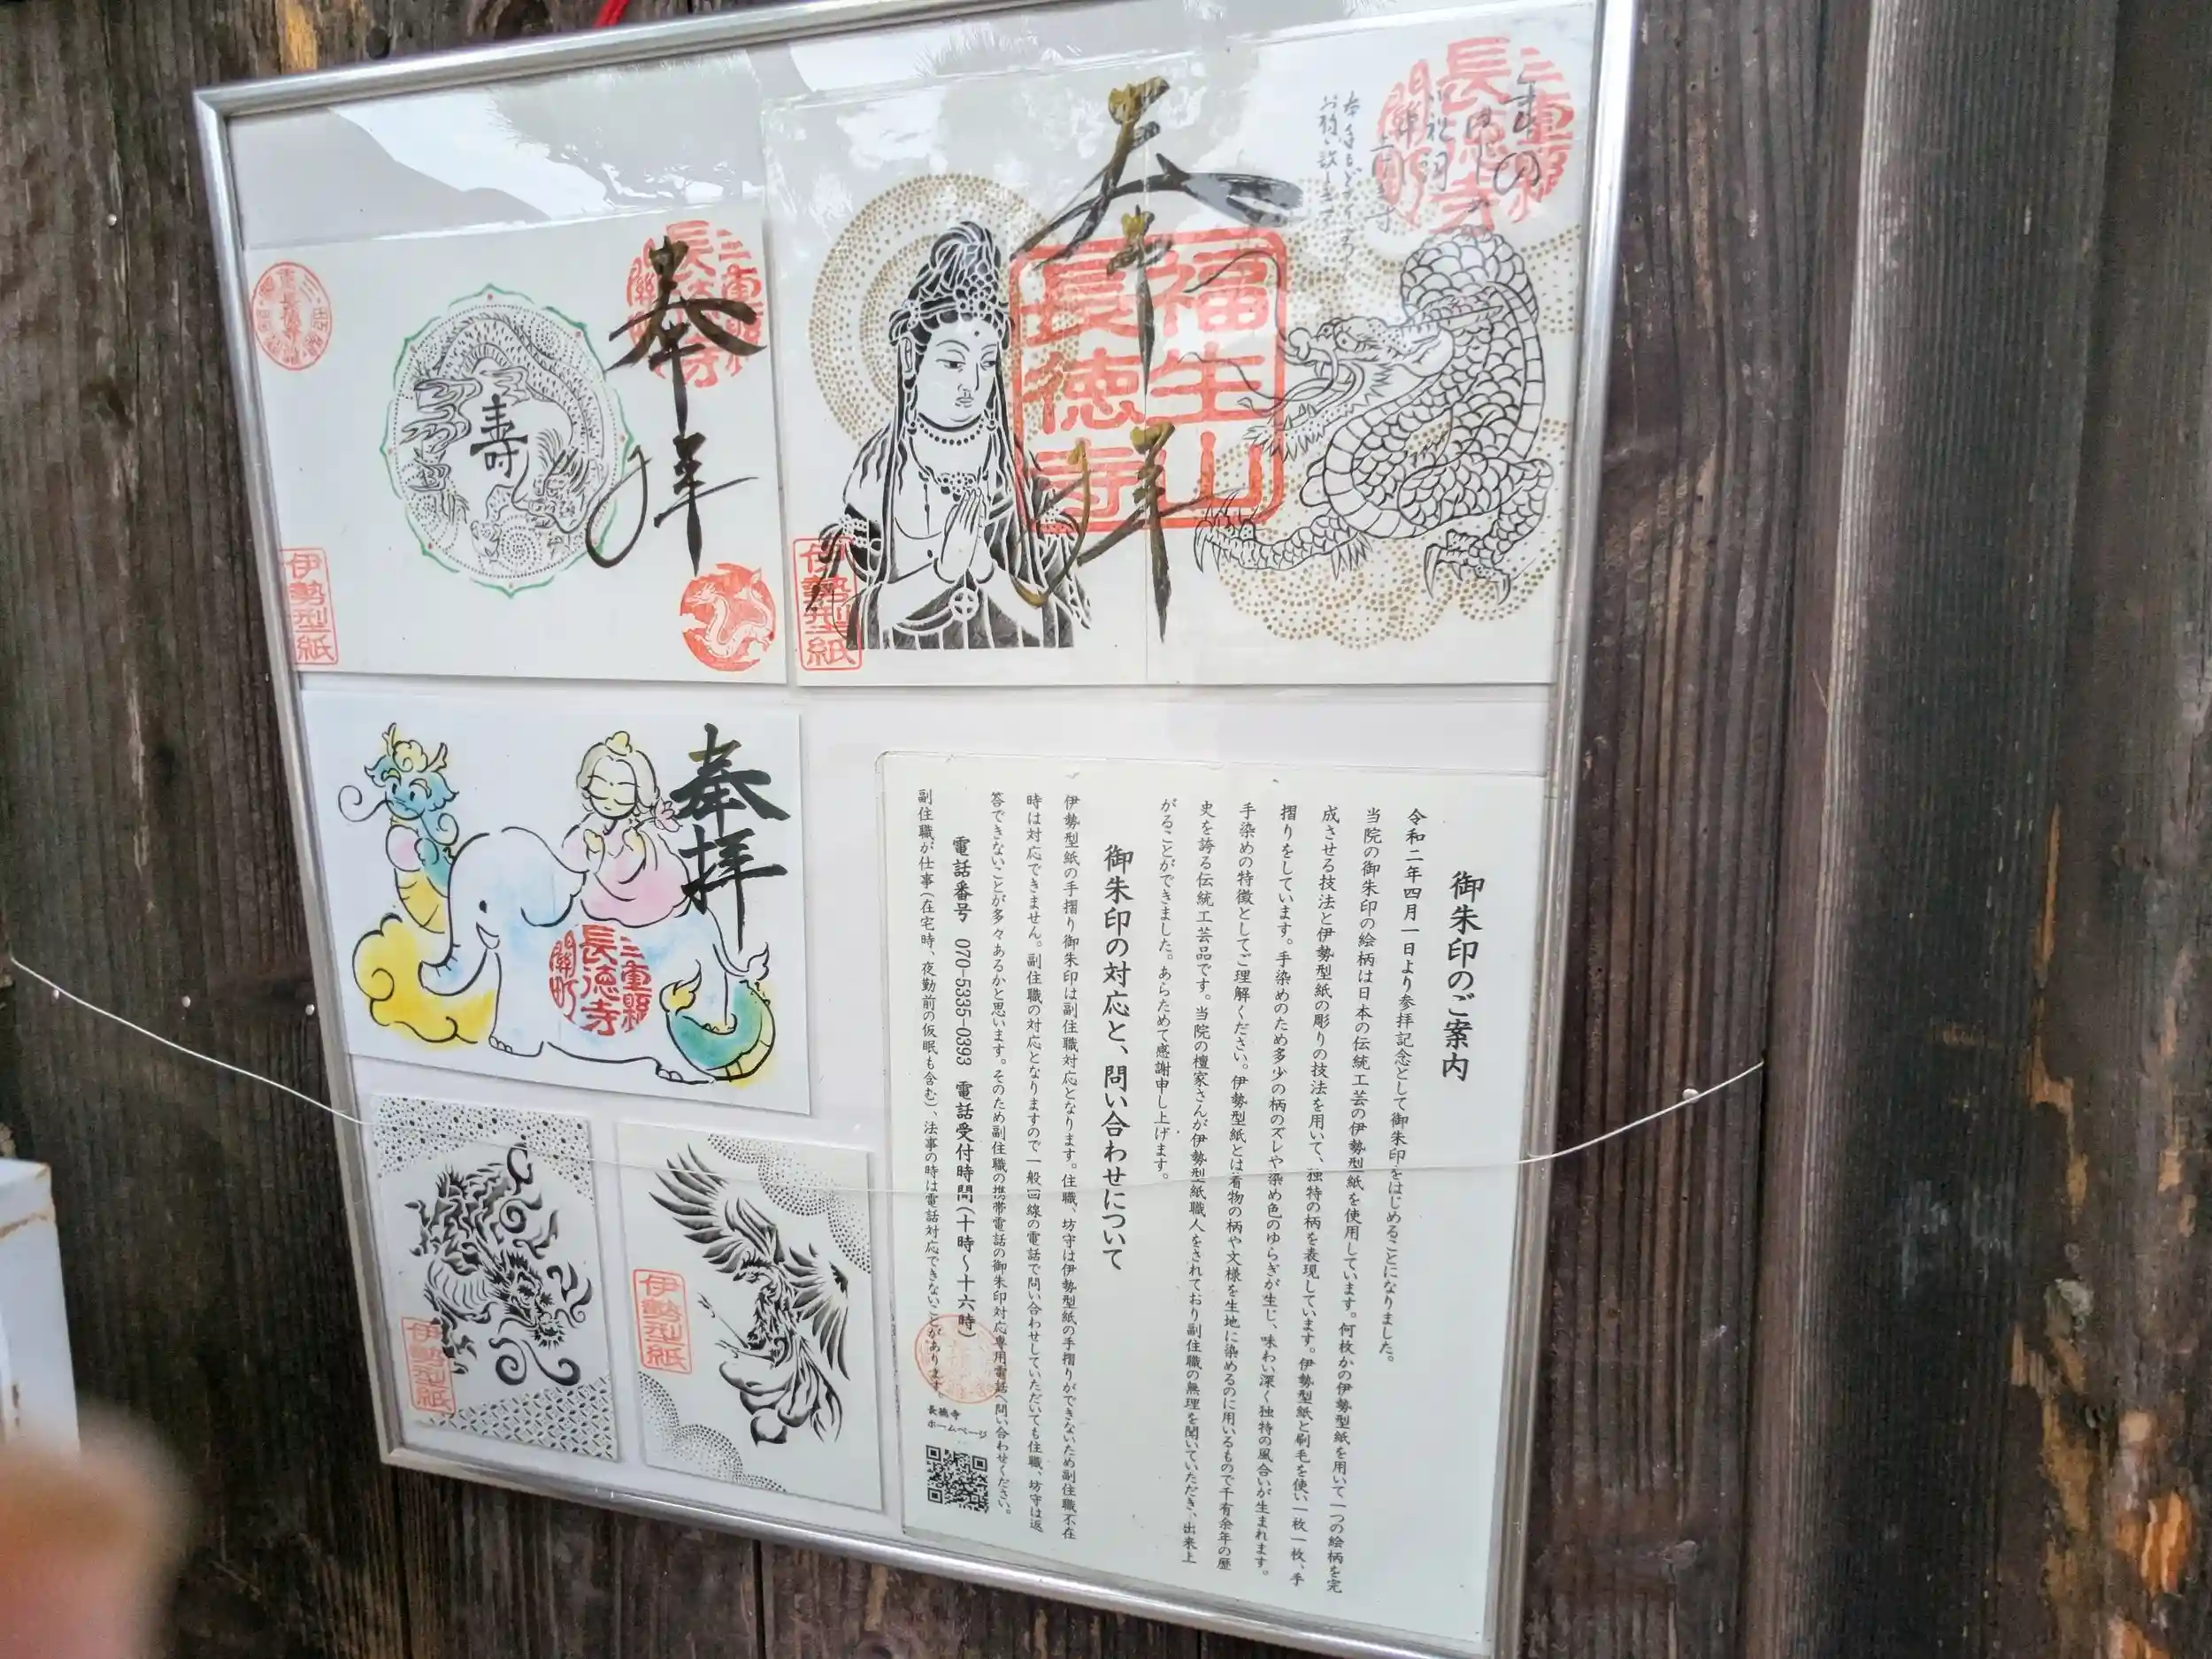 奉拝
寿
三重縣
長徳寺
關町
伊勢型紙
奉拝
福生山
長徳寺
三重縣
長徳寺
關町
伊勢型紙
奉拝
三重縣
長徳寺
關町
伊勢型紙
伊勢型紙
御朱印のご案内
令和二年四月一日より参拝記念として御朱印をはじめることになりました。
当院の御朱印の絵柄は日本の伝統工芸の伊勢型紙を使用しています。何枚かの伊勢型紙を用いて一つの絵柄を完
成させる技法と伊勢型紙の彫りの技法を用いて、独特の柄を表現しています。伊勢型紙と刷毛を使い一枚一枚、手
摺りをしています。手染めのため多少の柄のズレや染め色のゆらぎが生じ、味わい深く独特の風合いが生まれます。
手染めの特徴としてご理解ください。伊勢型紙とは着物の柄や文様を生地に染めるのに用いるもので千有余年の歴
史を誇る伝統工芸品です。当院の檀家さんが伊勢型紙職人をされており副住職の無理を聞いていただき、出来上
がることができました。あらためて感謝申し上げます。
御朱印の対応と、問い合わせについて
伊勢型紙の手摺り御朱印は副住職対応となります。住職、坊守は伊勢型紙の手摺りができないため副住職不在
時は対応できません。副住職の対応となりますので一般回線の電話で問い合わせしていただいても住職、坊守は返
答できないことが多々あるかと思います。そのため副住職の携帯電話の御朱印対応専用電話へ問い合わせください。
電話番号 070-5335-0393 電話受付時間(十時～十六時)
副住職が仕事(在宅時、夜勤前の仮眠も含む)、法事の時は電話対応できないことがあります。
長徳寺
ホームページ